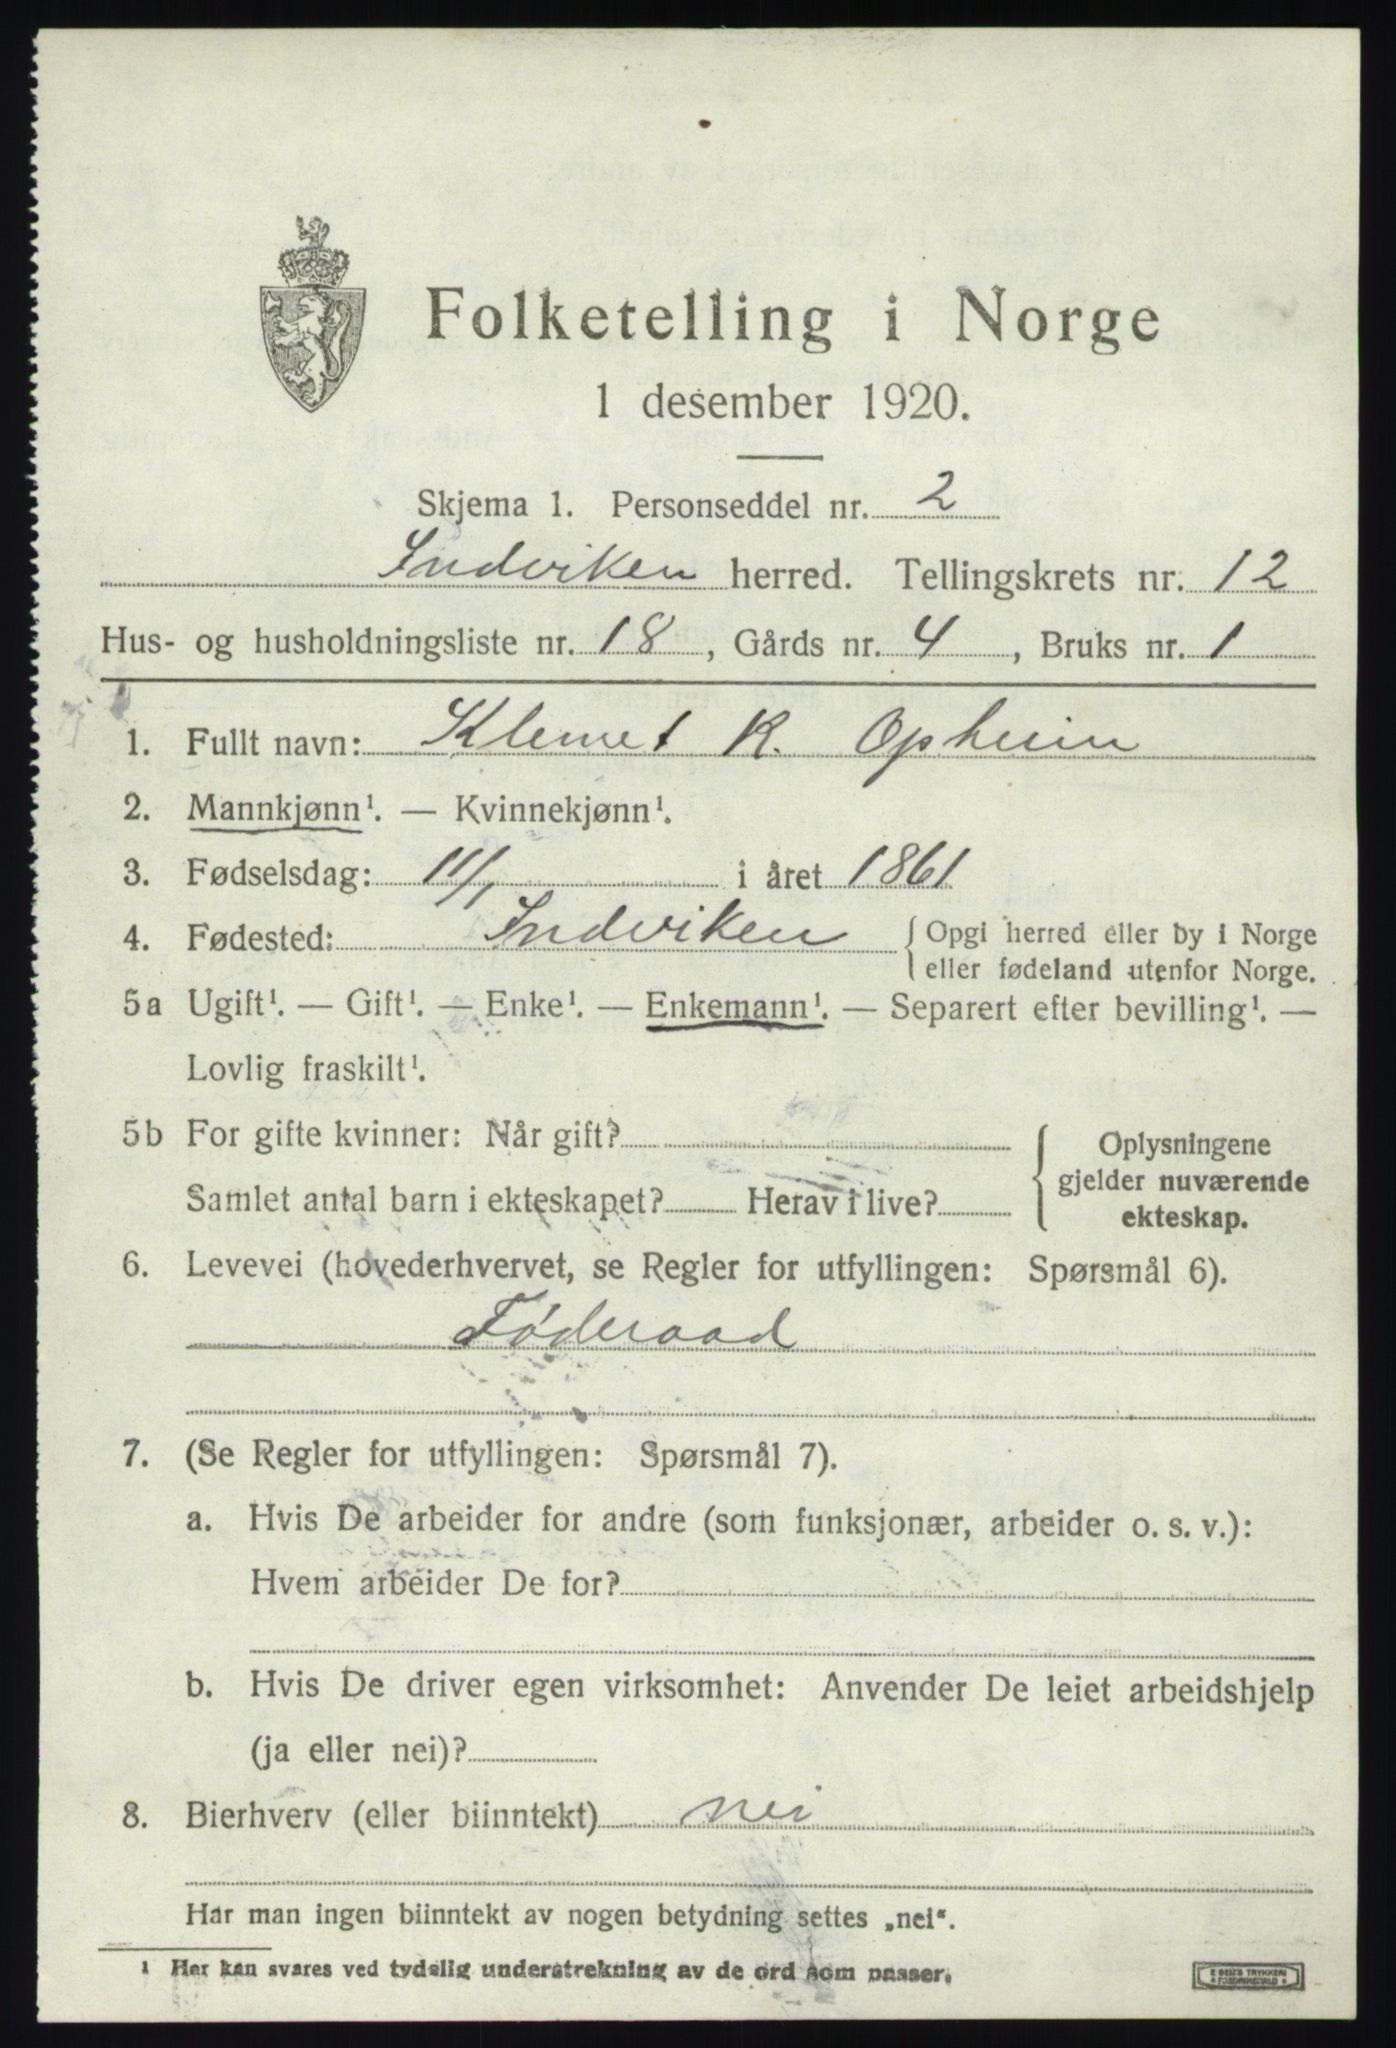 Folketelling i Norge
1 desember 1920.
Skjema 1. Personseddel nr. 2
Indviken herred. Tellingskrets nr. 12
Hus- og husholdningsliste nr. 18, Gårds nr. 4, Bruks nr. 1
1. Fullt navn: Klemet K. Opheim
2. Mannkjønn¹. — Kvinnekjønn¹.
3. Fødselsdag: 11/1 i året 1861
4. Fødested: Indviken { Opgi herred eller by i Norge
eller fødeland utenfor Norge.
5a Ugift¹. — Gift¹. — Enke¹. — Enkemann¹. — Separert efter bevilling¹. —
Lovlig fraskilt¹.
5b For gifte kvinner: Når gift?
Samlet antal barn i ekteskapet? Herav i live?
{ Oplysningene
gjelder nuværende
ekteskap.
6. Levevei (hovederhvervet, se Regler for utfyllingen: Spørsmål 6).
Føderaad
7. (Se Regler for utfyllingen: Spørsmål 7).
a. Hvis De arbeider for andre (som funksjonær, arbeider o. s. v.):
Hvem arbeider De for?
b. Hvis De driver egen virksomhet: Anvender De leiet arbeidshjelp
(ja eller nei)?
8. Bierhverv (eller biinntekt) nei
Har man ingen biinntekt av nogen betydning settes „nei“.
¹ Her kan svares ved tydelig understrekning av de ord som passer.